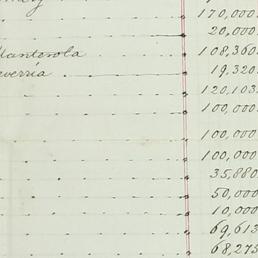 170,000.
20,000.
Manterola 108,360.
verria 19,320.
120,103
100,000.
100,000
100,000
35,880.
50,000
10,000
69,613
68,275